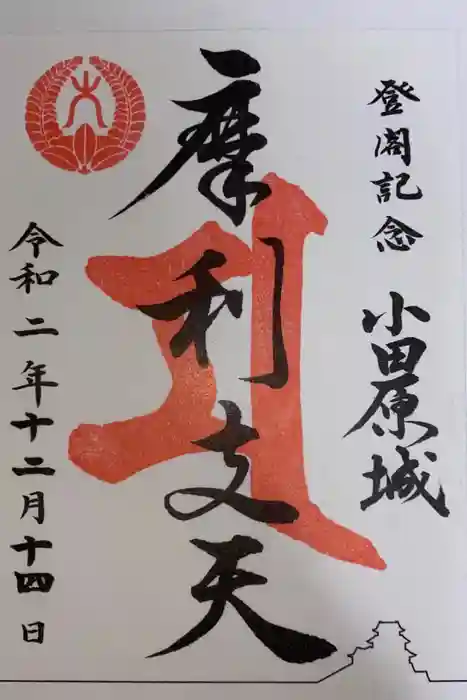 登閣記念
小田原城
摩利支天
令和二年十二月十四日